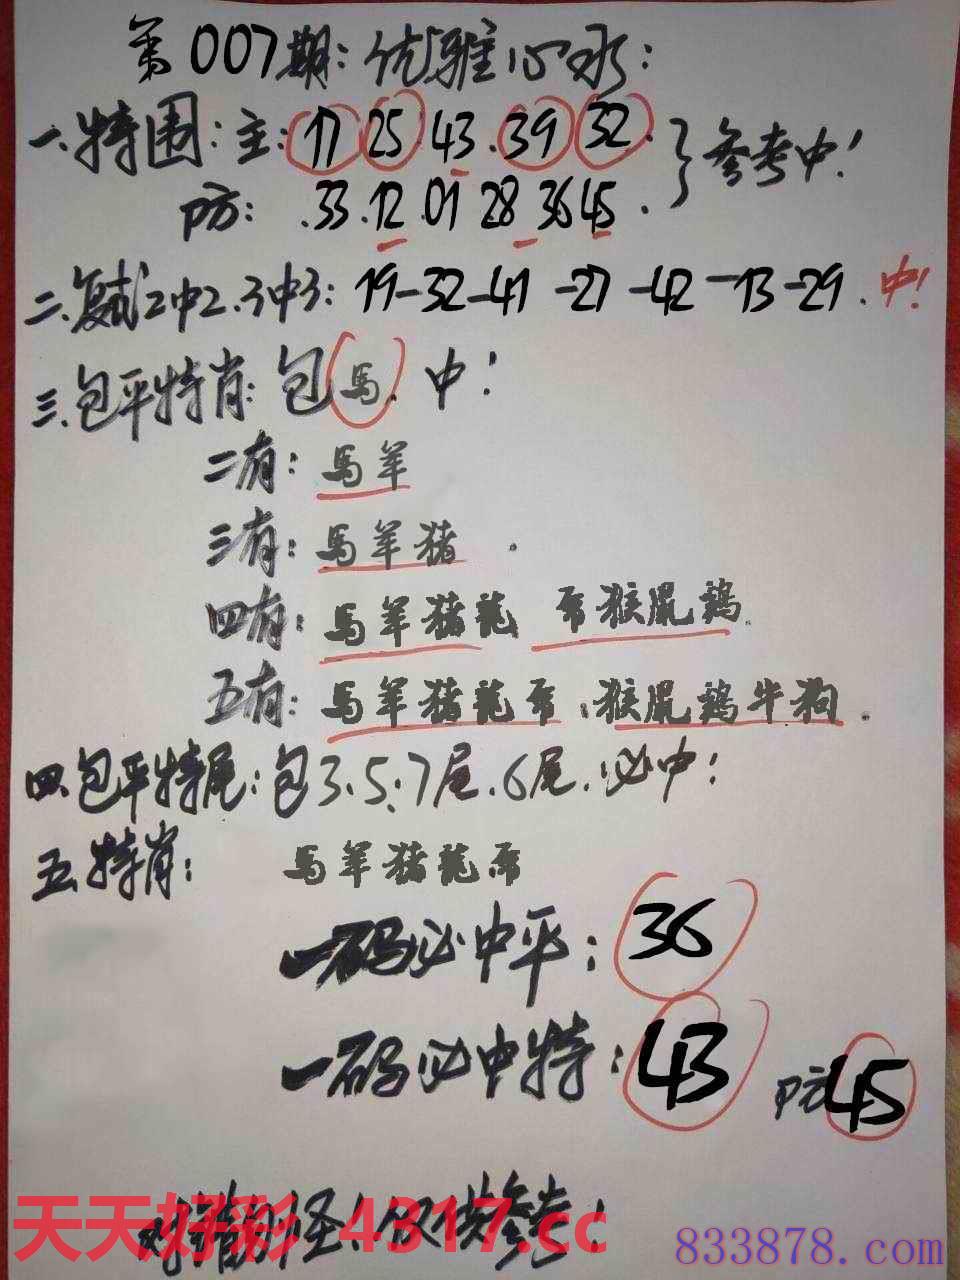 第007期:优雅心水:
一.特围:主:17 25 43.39 32.}参考中!
防:.33.12.01 28 36 45.
二.复试2中2.3中3:19-32-41-27-42-13-29.中!
三.包平特肖:包馬.中!
二有:馬羊
三有:馬羊猪.
四有:馬羊猪龍 虎猴鼠鷄.
五有:馬羊猪龍虎.猴鼠鷄牛狗.
四.包平特尾:包3.5.7尾.6尾.必中!
五.特肖:馬羊猪龍虎
一码必中平:36
一码必中特:43 防45
对错别怪!仅供参考!
天天好彩 4317.cc
833878.com